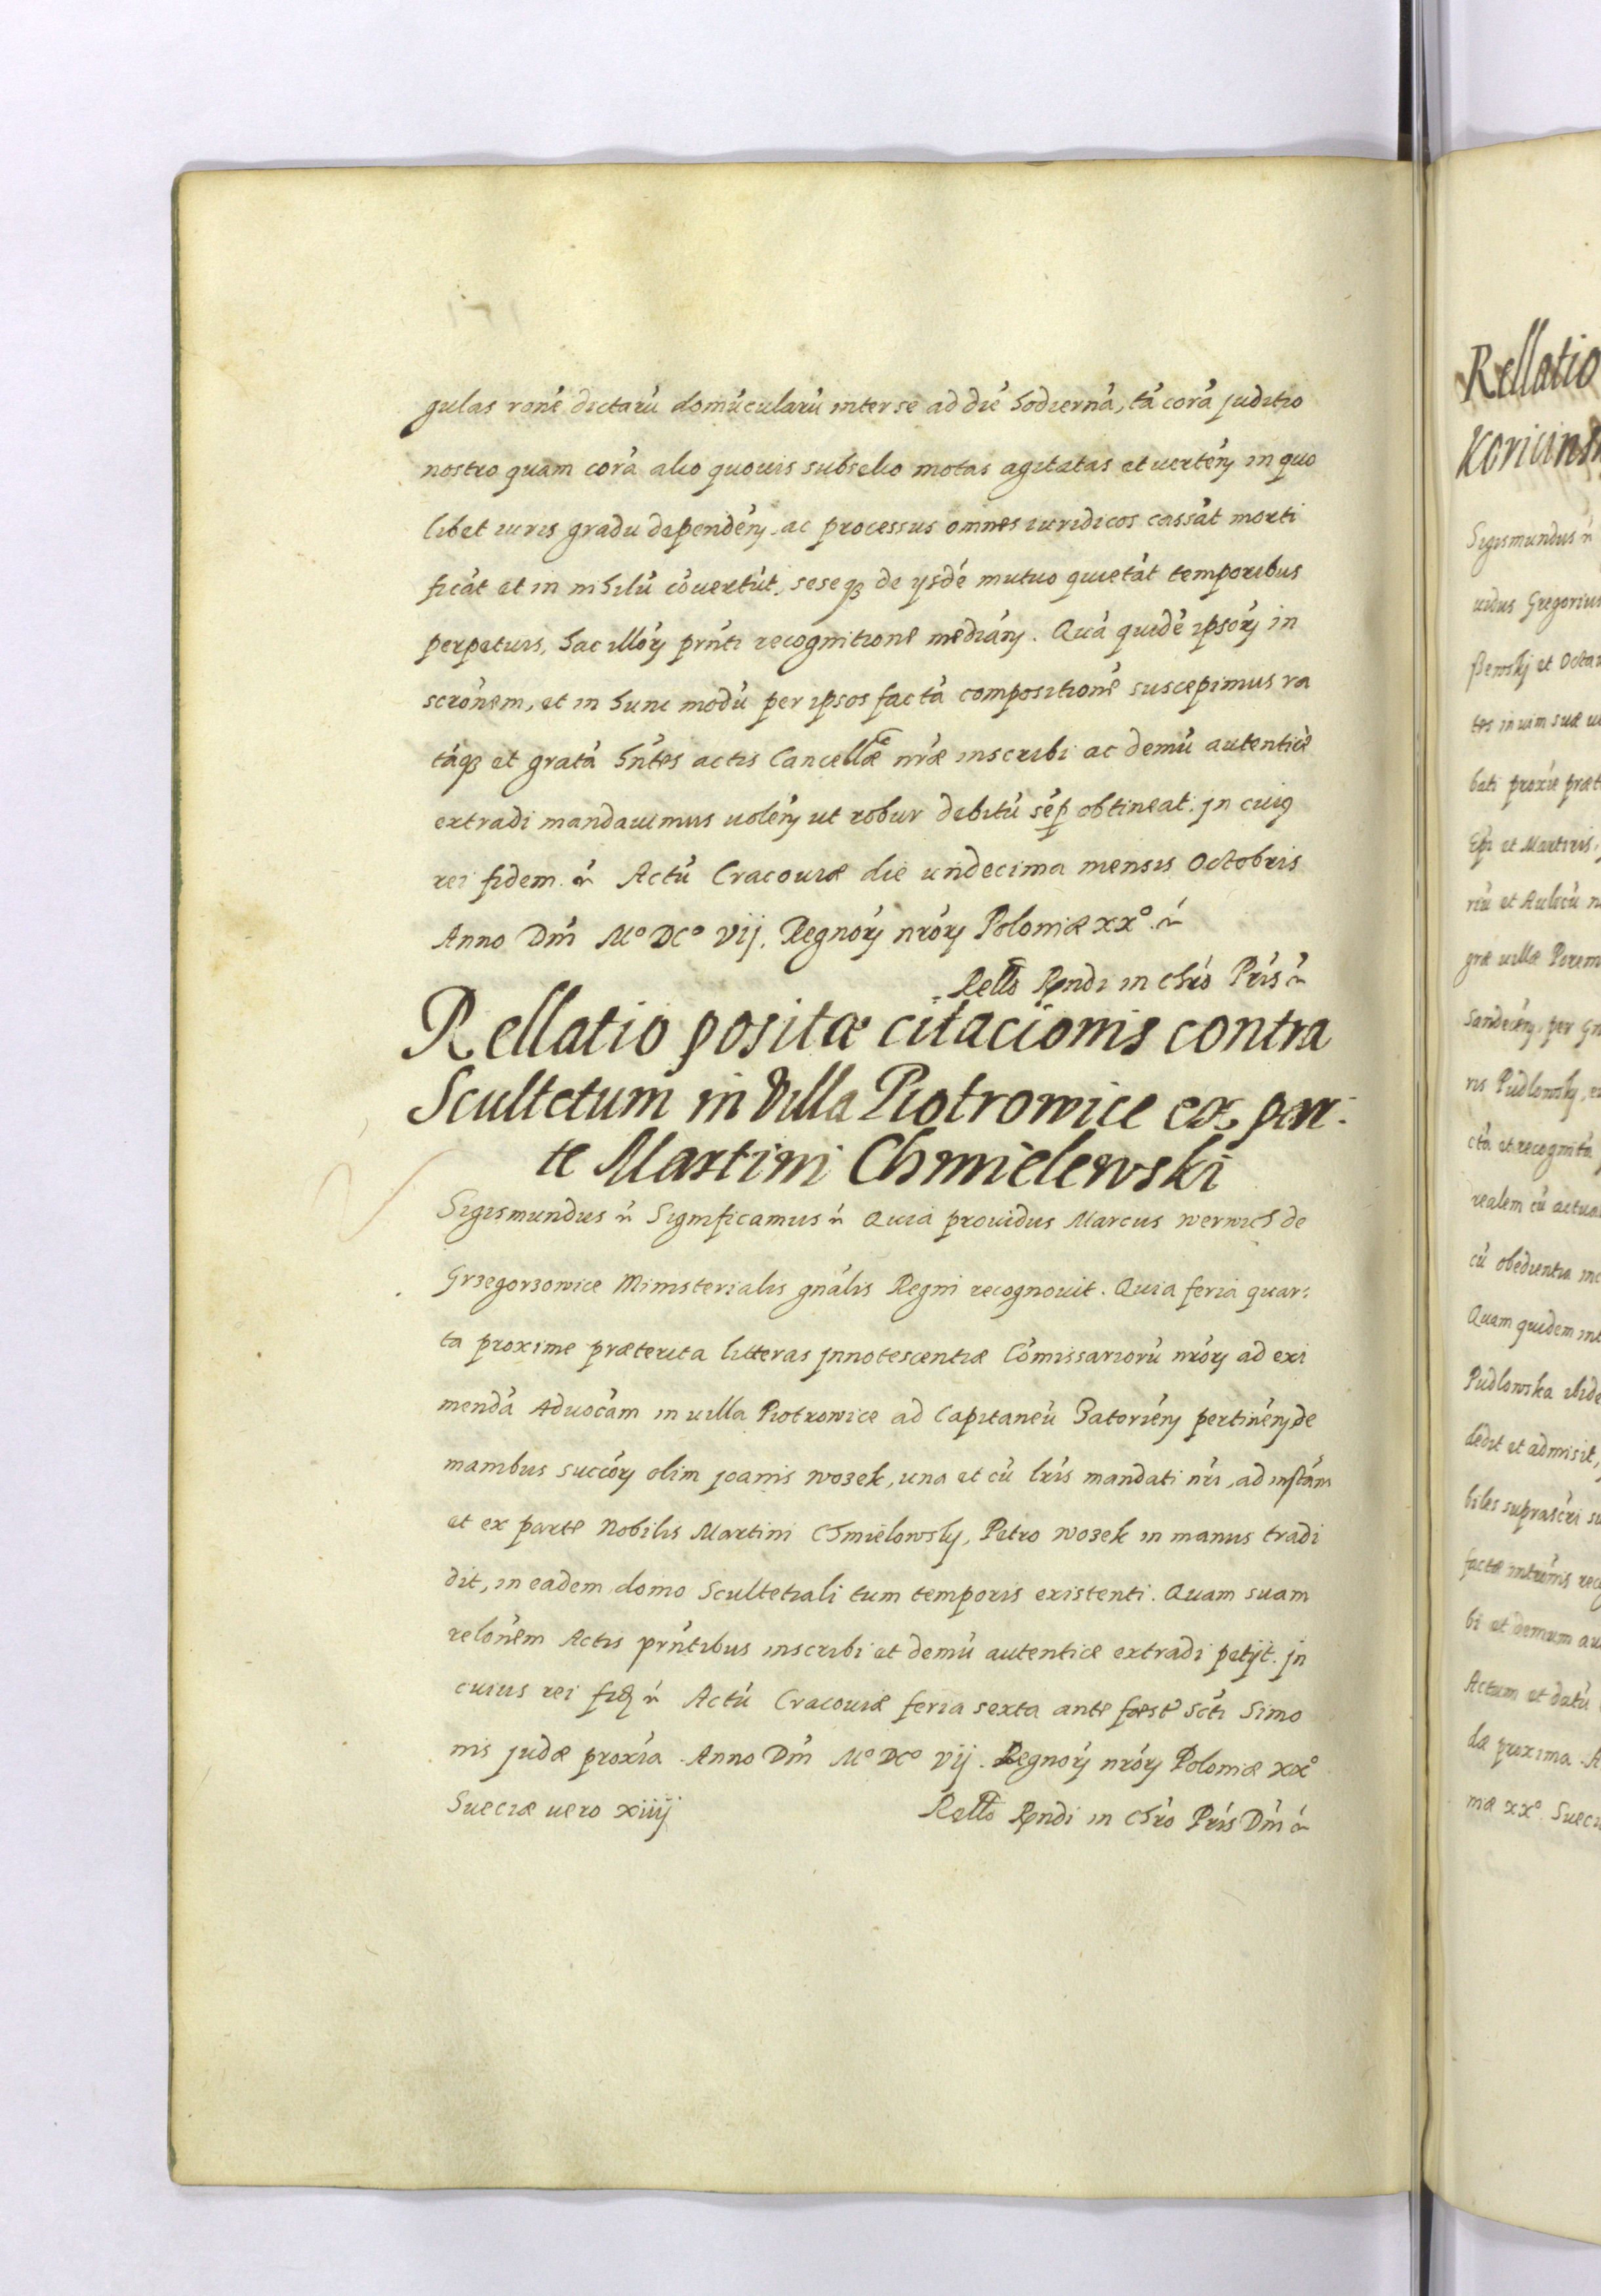 gulas rone̕ dictaru̕ domu̕cularu̕ inter se ad die̕ hodierna̕, ta̕ cora̕ juditio
nostro quam cora̕ alio quovis subselio motas agitatas et verten̕ in quo
libet iuris gradu dependen̕. ac processus omnes iuridicos cassa̕t morti
fica̕t et in nihilu̕ co̕vertu̕t, seseq3 de ysde̕ mutuo quieta̕t temporibus
perpetuis, hac illor̕ prn̕ti recognitione median̕. Qua̕ quide̕ ipsor̕ in
scro̕nem, et in hunc modu̕ per ipsos facta̕ compositione̕ suscepimus ra
ta̕q3 et grata̕ hn̕tes actis Cancellæ nr̕æ inscribi ac demu̕ autentice̕
extradi mandavimus volen̕ ut robur debitu̕ se̕p obtineat. jn cui9
rei fidem. r̕ Actu̕ Cracoviæ die undecima mensis Octobris
Anno Dm̕ Mº DCº Vij. Regnor̕ nr̕or̕ Poloniæ xxº r̕
Rello Rndi in Chr̕o Pr̕is r̕
Rellatio positæ citacionis contra
Scultetum in Villa Piotrowice ex par-
te Martini Chmielewski
Sigismundus r̕ Significamus r̕ Quia providus Marcus werwich de
Grzegorzowice Ministerialis gna̕lis Regni recognovit. Quia feria quar:
ta proxime præterita litteras jnnotescentiæ Co̕missarioru̕ nr̕or̕ ad exi
menda̕ Advoca̕m in villa Piotrowice ad Capitaneu̕ Zatorien̕ pertinen̕ de
manibus succor̕ olim joanis wozek, una et cu̕ lr̕is mandati nr̕i, ad insta̕m
et ex parte Nobilis Martini Chmielowsky, Petro wozek in manus tradi
dit, in eadem domo Scultetiali tum temporis existenti. Quam suam
relo̕nem Actis prn̕tibus inscribi et demu̕ autentice extradi petijt. jn
cuius rei fid r̕ Actu̕ Cracoviæ feria sexta ante fæst Sc̕ti Simo
nis judæ proxi̕a. Anno Dm̕ Mº DCº Vij. Regnor̕ nr̕or̕ Poloniæ xxº
Sueciæ vero xiiij
Rello Rndi in Chr̕o Pr̕is Dm̕ r̕
Rellatio
Sigismundus r̕
vidus Gregorius
tes in vim suæ
bati proxi̕e præt
Ep̕i et Martiris,
riu̕ et Aulicu̕
græ villæ Porem
Sandecien̕, per
ris Pudlowsky,
cta̕ et recognita
realem cu̕ actua
cu̕ obedientia
Quam quidem
Pudlowska
dedit et admisit,
biles suprascr̕i
factæ
bi et demum
Actum et datu̕
dæ proxima.
niæ xxº. Sueci